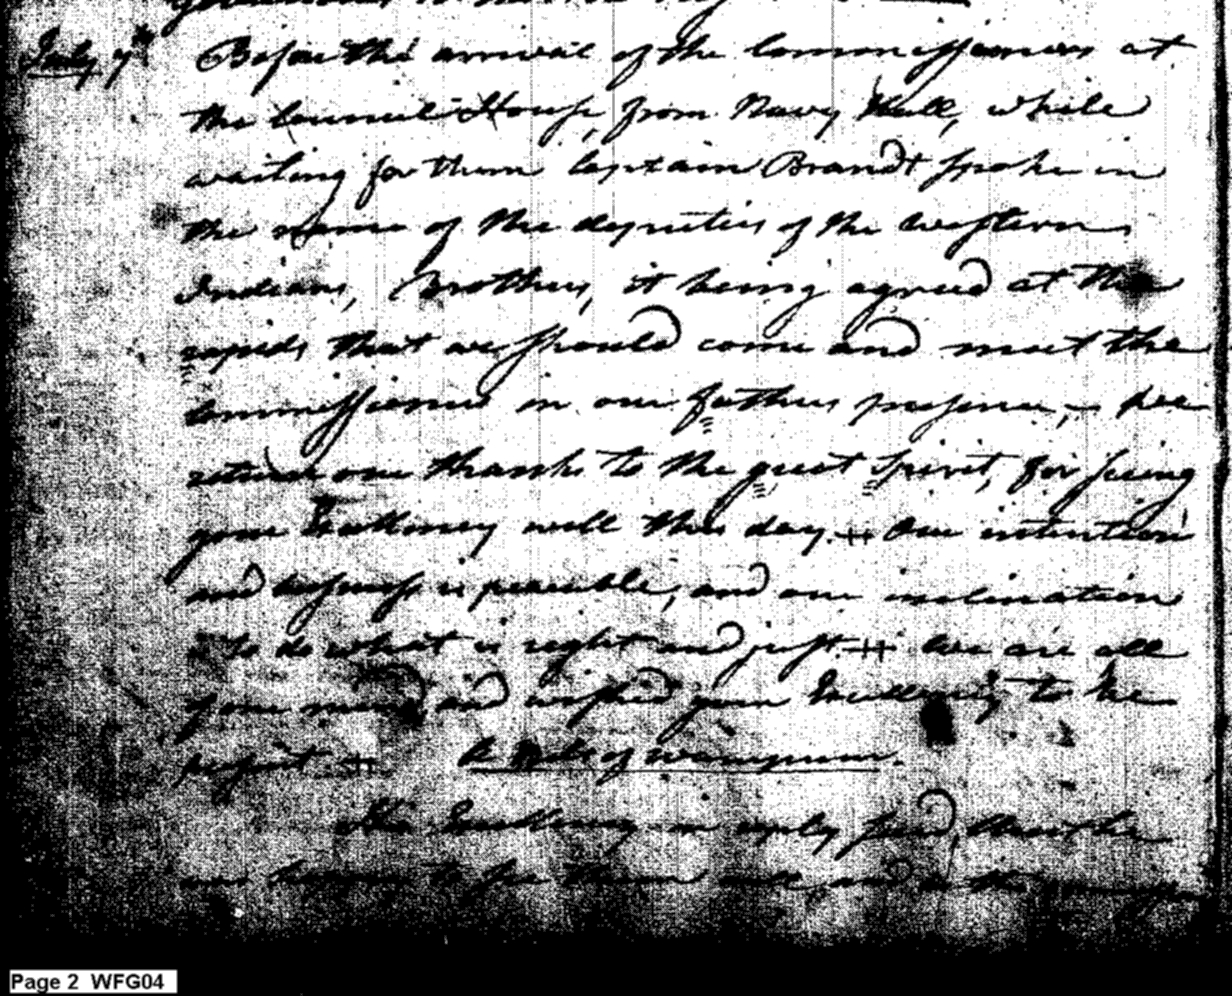 July 7th Before the arrival of the Commissioners at
the Council House, from Navy Hall, while
waiting for them Captain Brandt spoke in
the name of the deputies of the western
Indians, Brother, it being agreed at the
rapids that we should come and meet the
Commissioners in our fathers presence, we
return our thanks to the great Spirit, for seeing
your Excellency well this day. Our intention
and business is peaceable, and our inclination
to do what is right and just. We are all
of one mind, and wished your Excellency to be
present A Belt of wampum.
His Excellency in reply said, that he
was happy to see them well, and as the
Page 2 WFG04